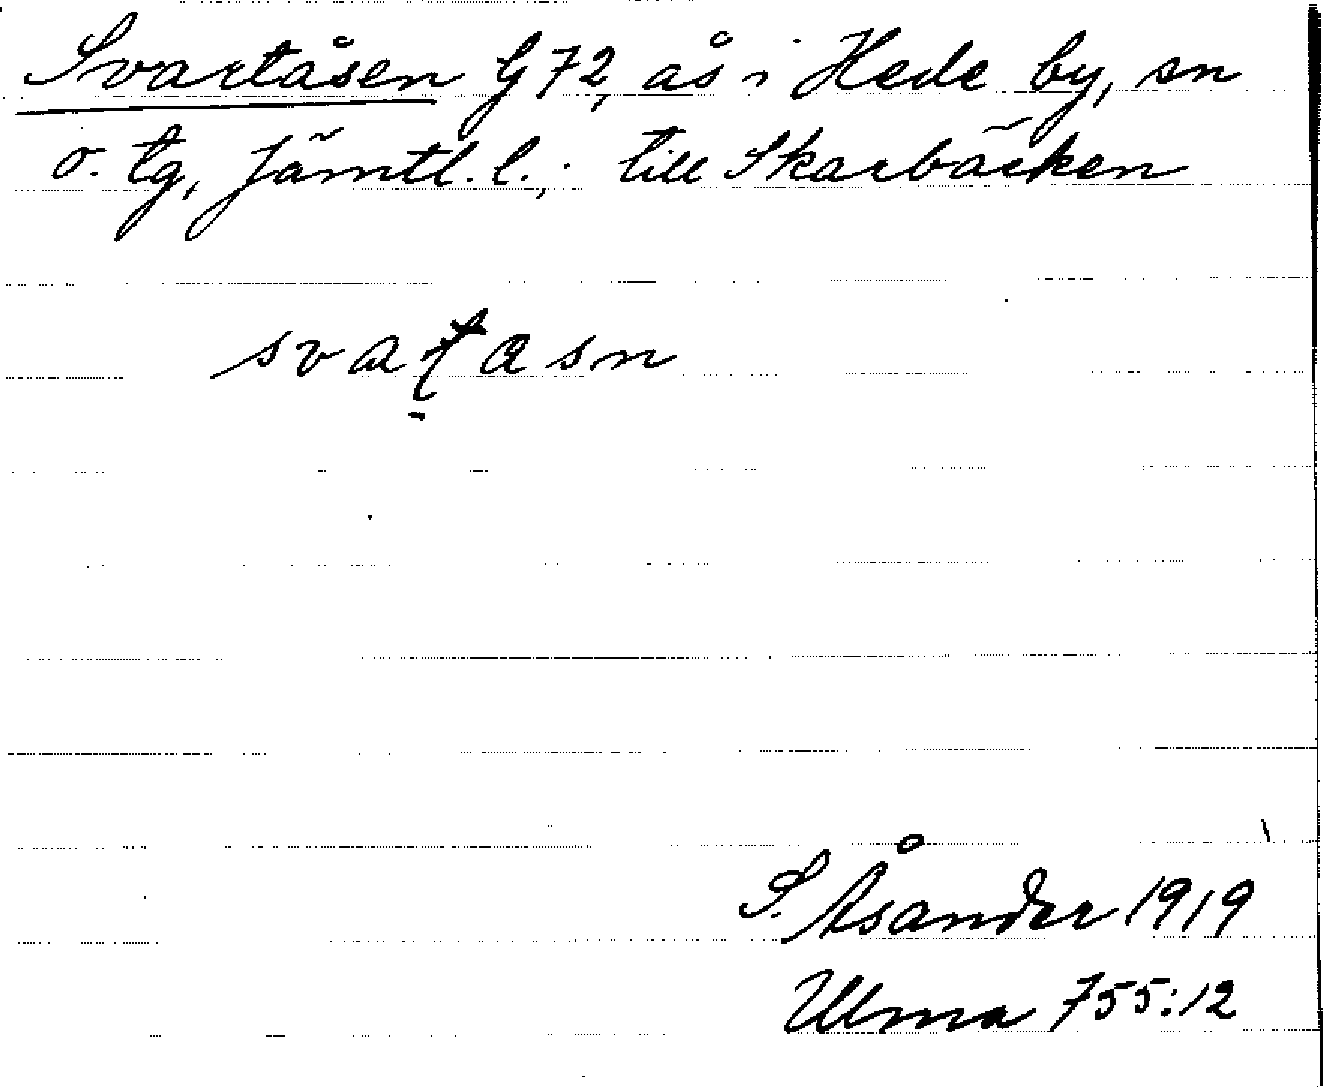 Svartåsen G 72, ås i Hede by, sn
o. tg, Jämtl. l.; till Skarbäcken
svatasn
S. Åsander 1919
Ulma 755:12